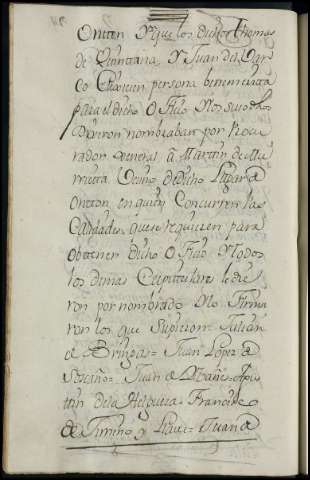 Onton Yque los dichos Thomas
de Quintana Y Juan de
persona benemerita
para el dicho Ofiᵒ Y los suso dhos
Dijeron nombraban por Procu
rador general a Martin de
Vecino de dicho Lugar de
Onton en quien Concurren las
Calidades que se requieren para
obtener dicho Ofiᵒ Y todos
los demas Capitulares le die
ron por nombrado Y lo firma
ron los que Supieron = Julian
de Bringas = Juan Lopez de
= Juan de = Agus
tin de la Helguera = Francisco
de y = Juan de